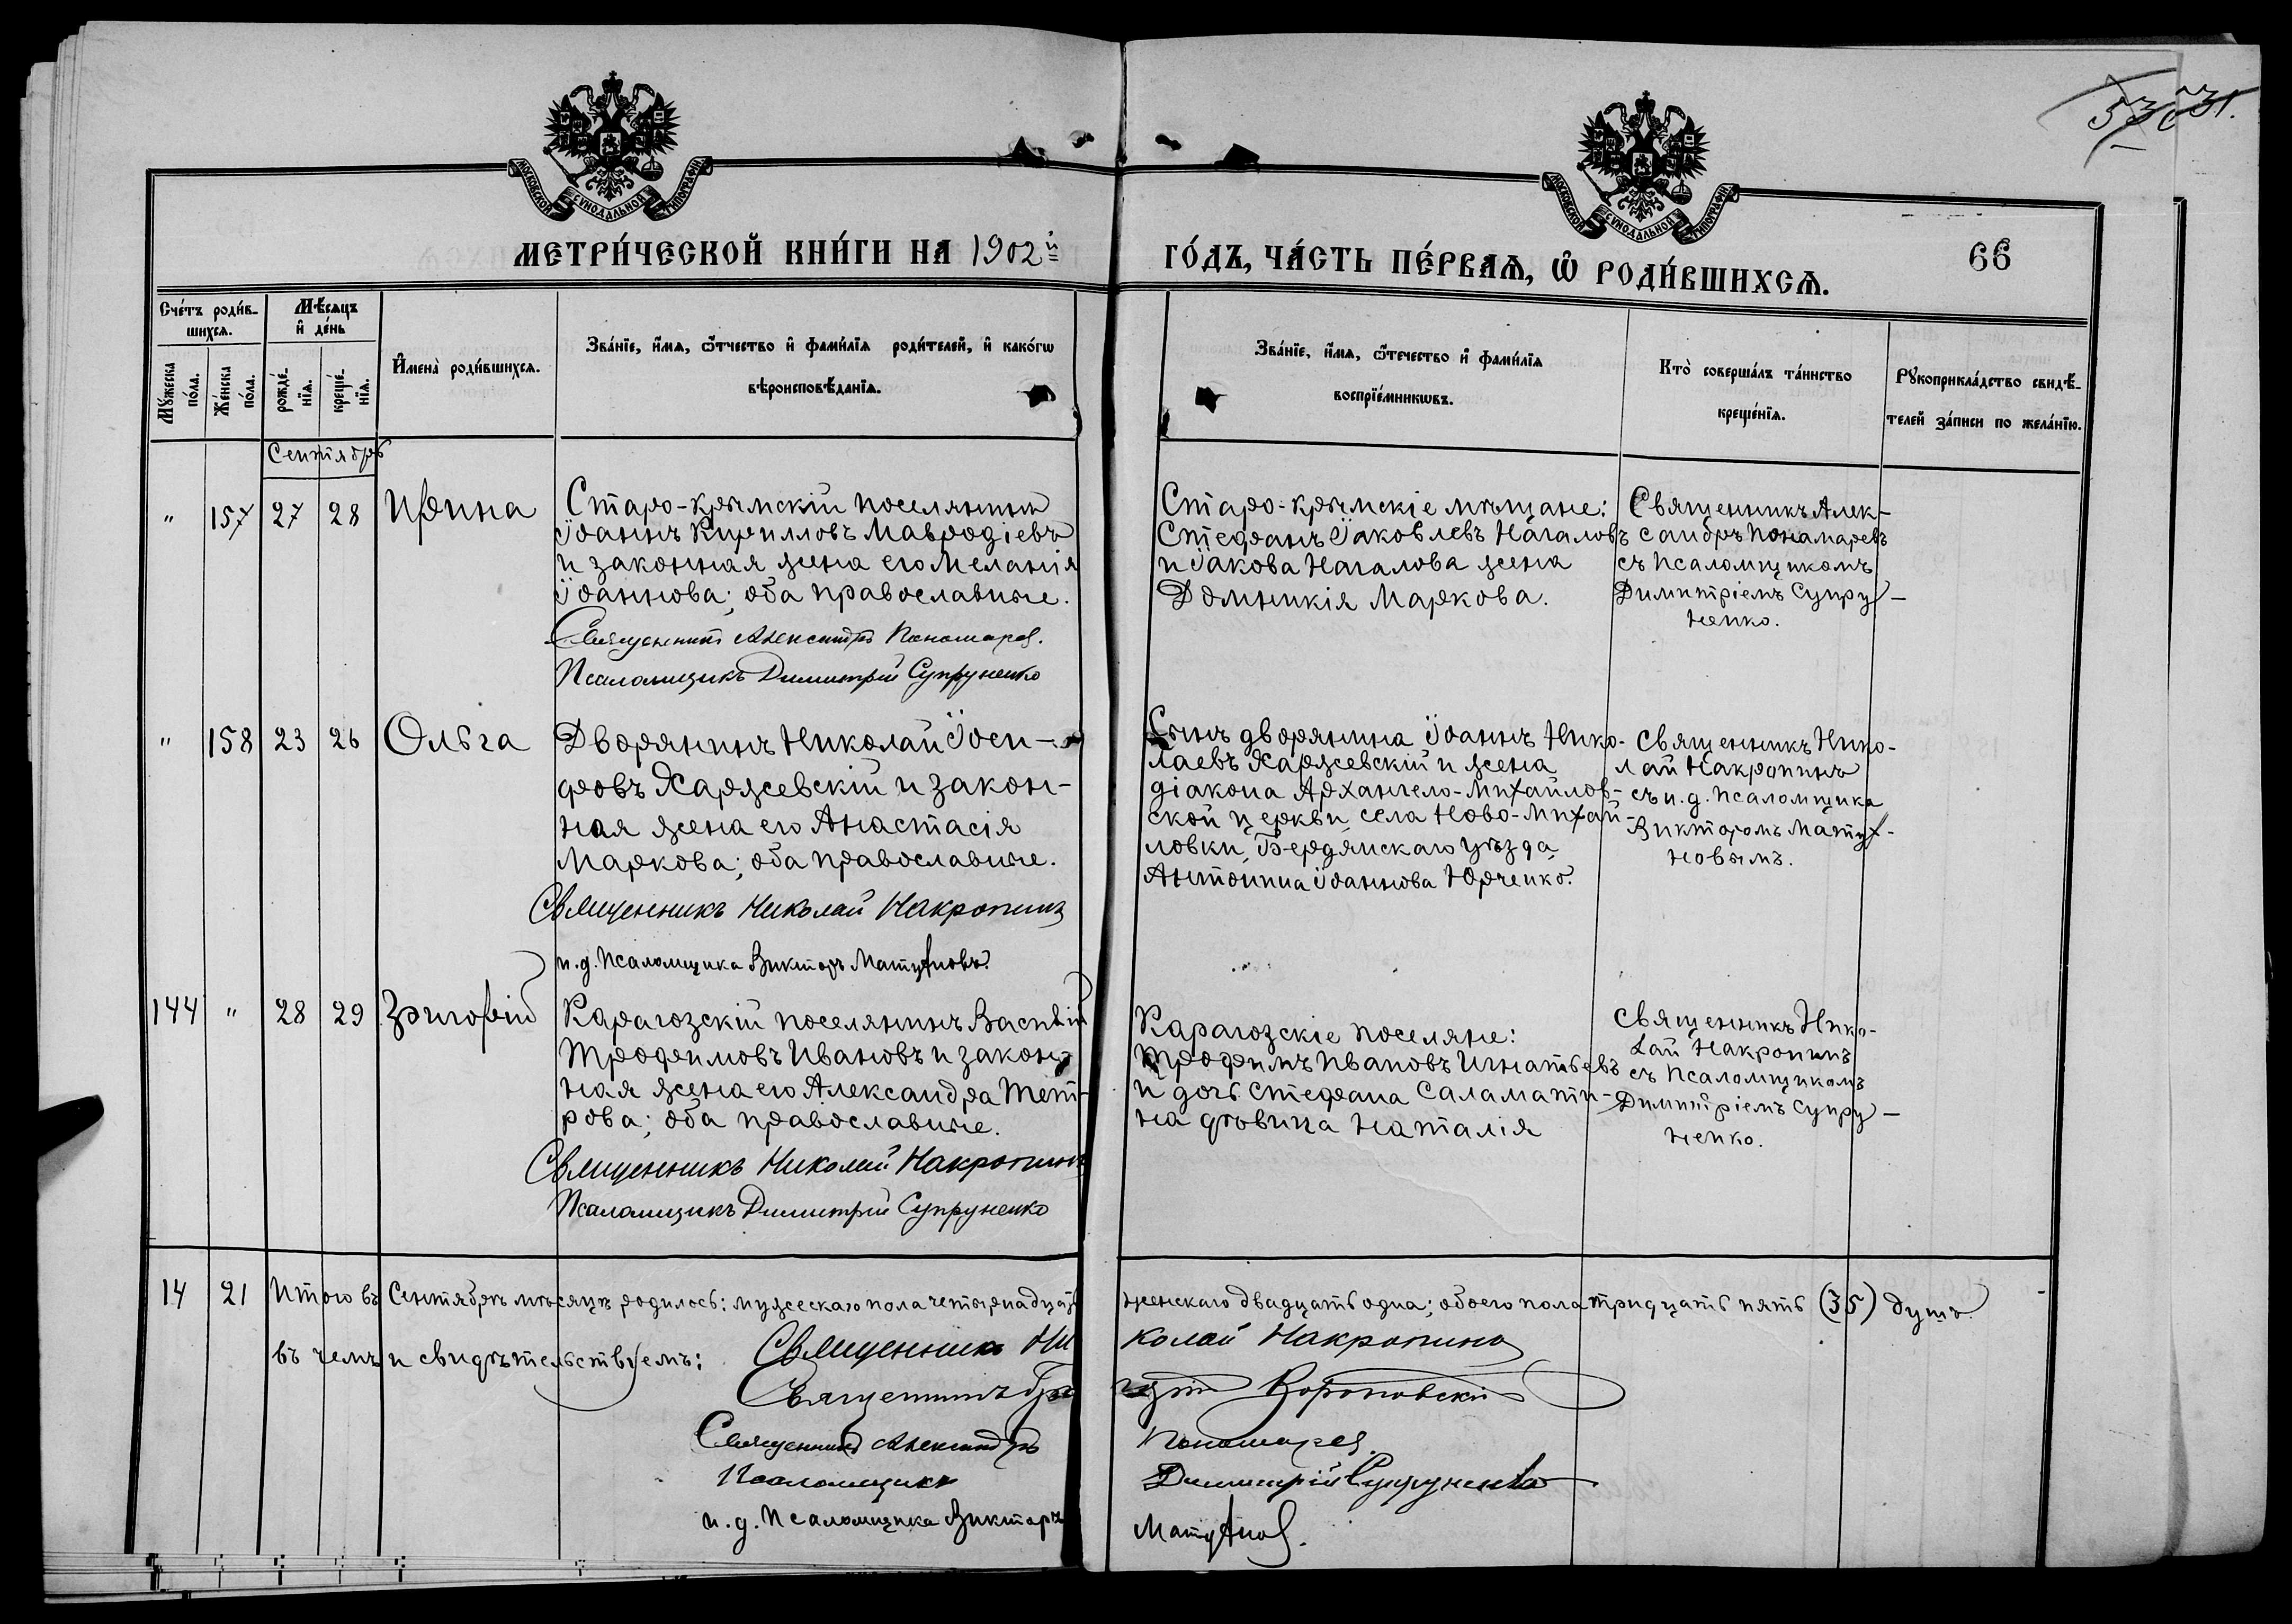 МОСКОВСКОЙ СѴНОДАЛЬНОЙ ТИПОГРАФІИ
МОСКОВСКОЙ СѴНОДАЛЬНОЙ ТИПОГРАФІИ
МЕТРИ́ЧЕСКОЙ КНИ́ГИ НА 1902й
ГО́ДЪ, ЧА́СТЬ ПЕ́РВАѦ, Ѡ҆ РОДИ́ВШИХСѦ.
66
Сче́тъ роди́в-
шихсѧ.
Мѣ́сѧцъ
и҆ де́нь
Мꙋ́жеска
по́ла.
Же́нска
по́ла.
рожде́-
нїѧ.
креще́-
нїѧ.
И҆мена̀ роди́вшихсѧ.
Зва́нїе, и҆́мѧ, ѻ҆́тчество и҆ фами́лїѧ роди́телей, и҆ како́гѡ
вѣроисповѣ́данїѧ.
Зва́нїе, и҆́мѧ, ѻ҆́течество и҆ фами́лїѧ
воспрїе́мникѡвъ.
Кто̀ соверша́лъ та́инство
креще́нїѧ.
Рꙋкоприкла́дство свидѣ́-
телей за́писи по жела́нїю.
Сентябрь
" 157 27 28 Ирина
Старо-крымскій поселянинъ
Іоаннъ Кирилловъ Мавродіевъ
и законная жена его Меланія
Іоаннова; оба православные.
Священникъ Александръ Пономарев.
Псаломщикъ Димитрій Супруненко
Старо-крымскіе мѣщане:
Стефанъ Іаковлевъ Нагаловъ
и Іакова Нагалова жена
Домникія Маркова.
Священникъ Алек-
сандръ Понамаревъ
съ псаломщикомъ
Димитріемъ Супру-
ненко.
" 158 23 26 Ольга
Дворянинъ Николай Іоси-
фовъ Харжевскій и закон-
ная жена его Анастасія
Маркова; оба православные.
Священникъ Николай Накропинъ
и.д. псаломщика Викторъ Матухновъ.
Сынъ дворянина Іоаннъ Нико-
лаевъ Харжевскій и жена
діакона Архангело-Михайлов-
ской церкви, села Ново-Михай-
ловки, Бердянскаго уѣзда,
Антонина Іоаннова Юрченко.
Священникъ Нико-
лай Накропинъ
съ и.д. псаломщика
Викторомъ Матух-
новымъ.
144 " 28 29 Григорій
Карагозскій поселянинъ Василій
Трофимовъ Ивановъ и закон-
ная жена его Александра Пет-
рова; оба православные.
Священникъ Николай Накропинъ
Псаломщикъ Димитрій Супруненко
Карагозскіе поселяне:
Трофимъ Ивановъ Игнатьевъ
и дочь Стефана Саламати-
на дѣвица Наталія
Священникъ Нико-
лай Накропинъ
съ псаломщикомъ
Димитріемъ Супру-
ненко.
14 21 Итого въ Сентябрѣ мѣсяцѣ родилось: мужескаго пола четырнадцать
женскаго двадцать одна; обоего пола тридцать пять (35) душъ.
въ чемъ и свидѣтельствуемъ:
Священникъ Николай Накропинъ
Священникъ
Священникъ Александръ Пономарев.
Псаломщикъ Димитрій Супруненко
и.д. псаломщика Викторъ Матухнов.